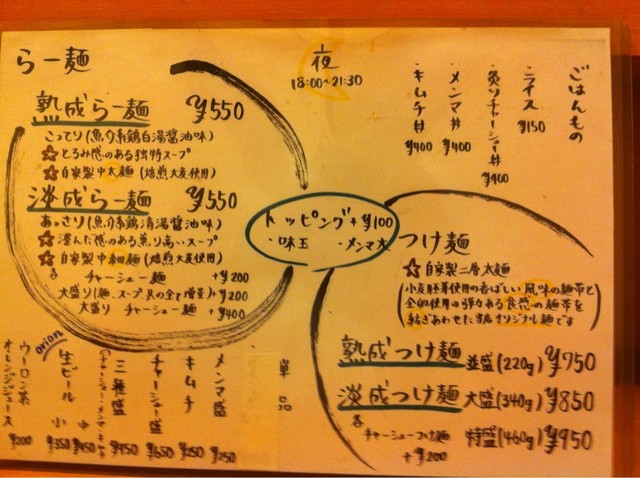 らー麺
熟成らー麺 ¥550
こってり(魚介系鶏白湯醤油味)
☆とろみ感のある独特スープ
☆自家製中太麺(焙煎大麦使用)
淡成らー麺 ¥550
あっさり(魚介系鶏清湯醤油味)
☆澄んだ感のある薫り高いスープ
☆自家製中細麺(焙煎大麦使用)
各 チャーシュー麺 +¥200
大盛り(麺、スープ、具の全て増量) +¥200
大盛り チャーシュー麺 +¥400
夜
18:00~21:30
ごはんもの
・ライス ¥150
・炙りチャーシュー丼 ¥400
・メンマ丼 ¥400
・キムチ丼 ¥400
トッピング+¥100
・味玉 ・メンマ大
つけ麺
☆自家製三層太麺
小麦胚芽使用の香ばしい風味の麺帯と
全粒使用の弾力ある食感の麺帯を
紡ぎあわせた当店オリジナル麺です
熟成つけ麺 並盛(220g) ¥750
淡成つけ麺 大盛(340g) ¥850
各 チャーシューつけ麺 +¥200
特盛(460g) ¥950
単品
メンマ盛 ¥250
キムチ ¥250
チャーシュー盛 ¥650
三種盛 ¥950
(チャーシュー・メンマ・キムチ)
orion
生ビール 中 ¥450
小 ¥350
ウーロン茶
オレンジジュース ¥200